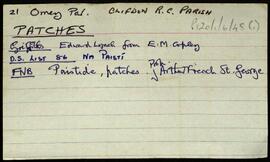 21 Omey Par. CLIFDEN R.C. PARISH
PATCHES
Edward Lynch from E.M. Copley
O.S. LIST S6 NA PAISTÍ
FNB Paistide, patches Prop. Arthur French St. George